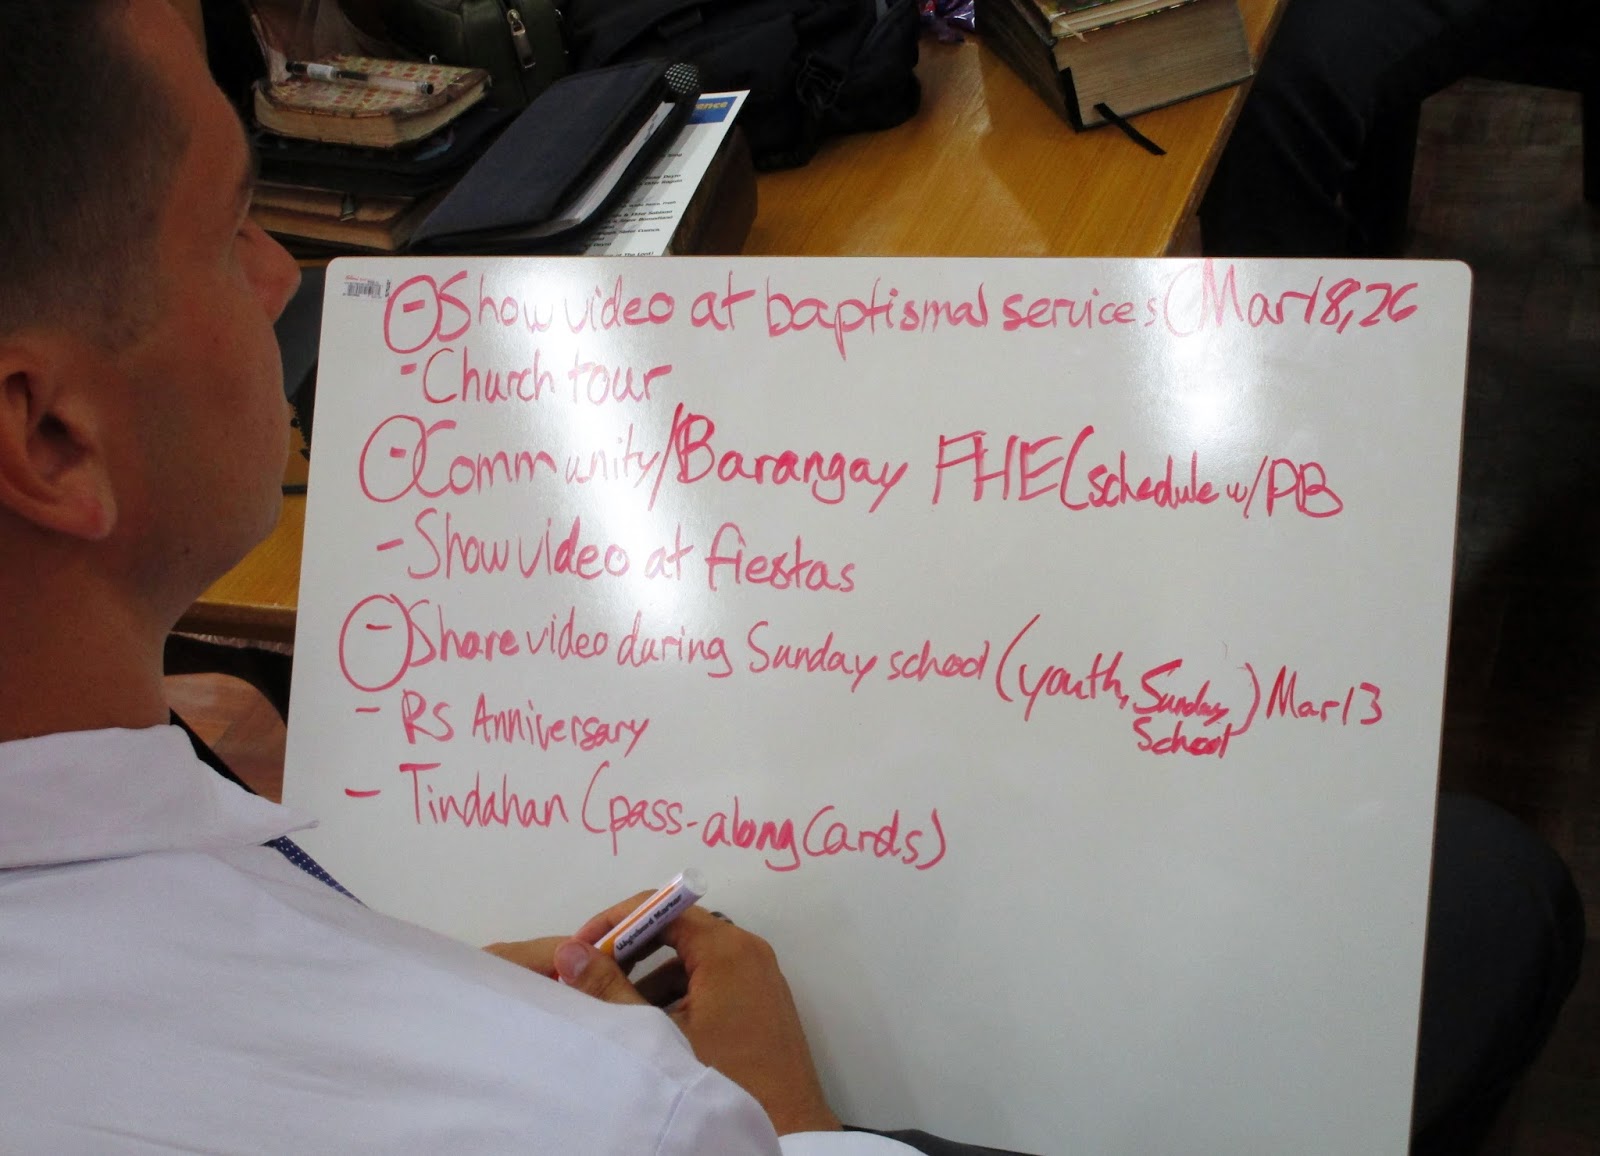 - Show video at baptismal services (Mar 18, 26
- Church tour
- Community/Barangay FHE (schedule w/ PB
- Show video at fiestas
- Share video during Sunday school (youth, Sunday School) Mar 13
- RS Anniversary
- Tindahan (pass-along Cards)
Whiteboard Marker